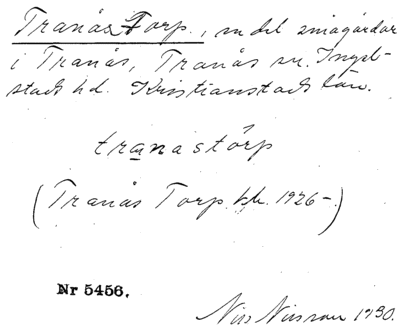 Tranås Torp., en del smågårdar
i Tranås, Tranås sn. Ingel-
stads hd. Kristianstads län.
tranastörp
(Tranås Torp. kbr. 1926-.)
Nr 5456.
Nils Nilsson 1930.